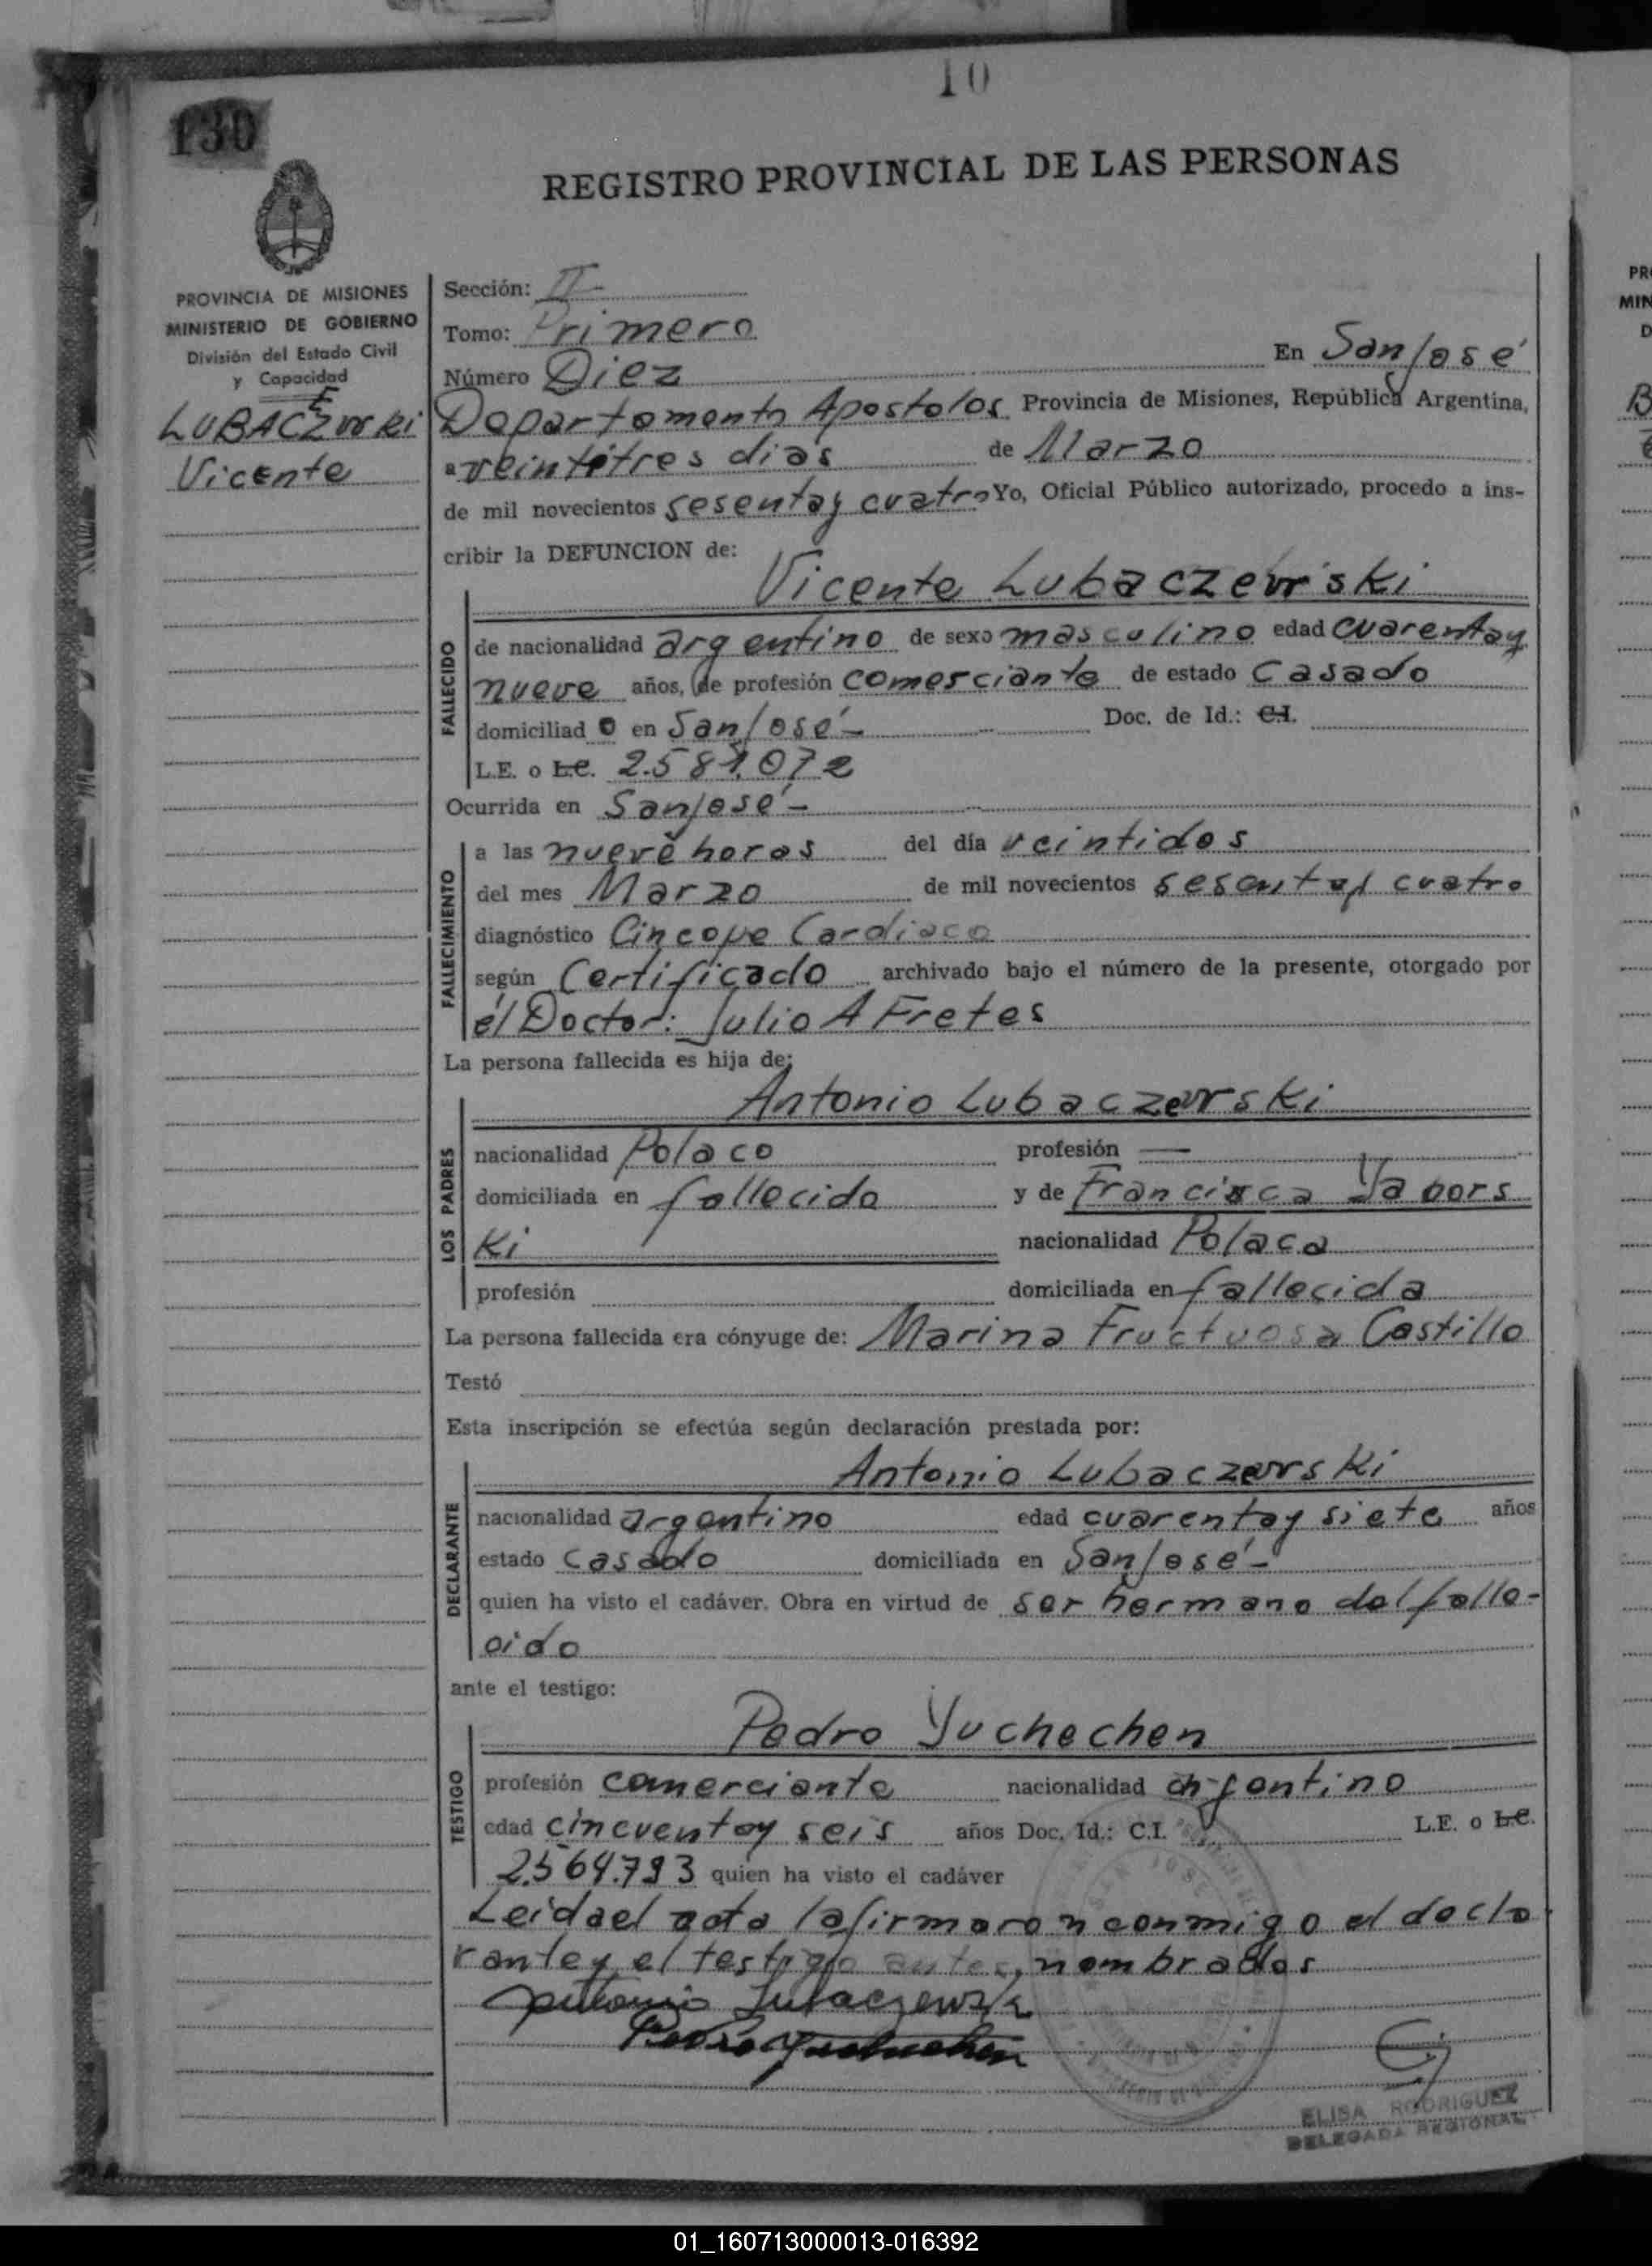 10
130
REGISTRO PROVINCIAL DE LAS PERSONAS
PROVINCIA DE MISIONES
MINISTERIO DE GOBIERNO
División del Estado Civil
y Capacidad
LUBACZEWSKI
Vicente
Sección: II
Tomo: Primero
Número Diez En San José
Departamento Apostoles Provincia de Misiones, República Argentina,
a veintitres dias de Marzo
de mil novecientos sesenta y cuatro Yo, Oficial Público autorizado, procedo a ins-
cribir la DEFUNCION de:
Vicente Lubaczewski
FALLECIDO
de nacionalidad argentino de sexo masculino edad cuarenta y
nueve años, de profesión comerciante de estado Casado
domiciliado en San José - Doc. de Id.: C.I.
L.E. o L.C. 2.581.072
Ocurrida en San José -
FALLECIMIENTO
a las nueve horas del día veintidos
del mes Marzo de mil novecientos sesenta y cuatro
diagnóstico Cincope Cardiaco
según Certificado archivado bajo el número de la presente, otorgado por
él Doctor: Julio A Fretes
La persona fallecida es hija de:
Antonio Lubaczewski
LOS PADRES
nacionalidad Polaco profesión —
domiciliada en fallecido y de Francisca Yabors
Ki nacionalidad Polaca
profesión domiciliada en fallecida
La persona fallecida era cónyuge de: Marina Fructuosa Castillo
Testó
Esta inscripción se efectúa según declaración prestada por:
Antonio Lubaczewski
DECLARANTE
nacionalidad argentino edad cuarenta y siete años
estado casado domiciliada en San José -
quien ha visto el cadáver. Obra en virtud de ser hermano del falle-
cido
ante el testigo:
Pedro Yuchechen
TESTIGO
profesión comerciante nacionalidad argentino
edad cincuenta y seis años Doc. Id.: C.I. L.E. o L.C.
2.564.793 quien ha visto el cadáver
Leida el acta la firmaron conmigo el decla
rante y el testigo antes nombrados
Antonio Lubaczewski
Pedro Yuchechen
SAN JOSE
ELISA RODRIGUEZ
DELEGADA REGIONAL
01_160713000013-016392